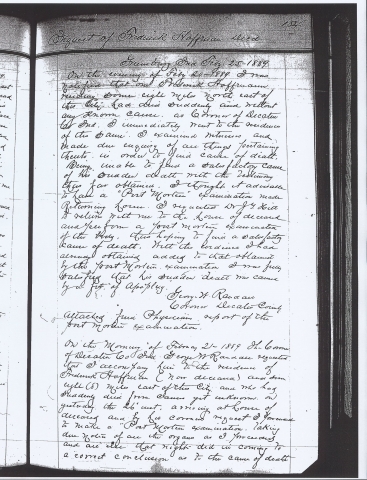 Inquest of Fredrick Hoffman Decd
Greensburg Ind Feby 25-1889
On the evening of Feby 20-1889 I was
notified that one Fredrick Hoffmann
residing some eight miles north east of
this City had died suddenly and without
any known cause. as Coroner of Decatur
Co Ind. I immediately went to the residence
of the same. I examined witnesses and
made due inquiry of all things pertaining
thereto, in order to find cause of death.
Being unable to find a satisfactory cause
of his sudden death with the testimony
thus far obtained, I thought it advisable
to have a Post Mortem examination made
Returning home I requested Dr
to return with me to the house of deceased
and perform a Post Mortem examination
of the body thus hoping to find a satisfactory
cause of death. With the evidence I had
already obtained added to that obtained
by the Post Mortem examination I was fully
satisfied that his sudden death was caused
by a fit of Apoplexy.
Geo. W Randall
Coroner Decatur County
Attached find Physicians report of the
Post Mortem examination.
On the Morning of February 21-1889 The Coroner
of Decatur Co Ind. George W Randall requested
that I accompany him to the residence of
Fredrick Hoffman (now deceased) and
eight (8) miles east of this City and who had
suddenly died from causes yet unknown on
yesterday the inst. arriving at home of
deceased and by his coroners request I proceeded
to make a Post Mortem examination. Taking
due notice of all the organs as I proceeded
and all else that might aid in coming to
a correct conclusion as to the cause of death